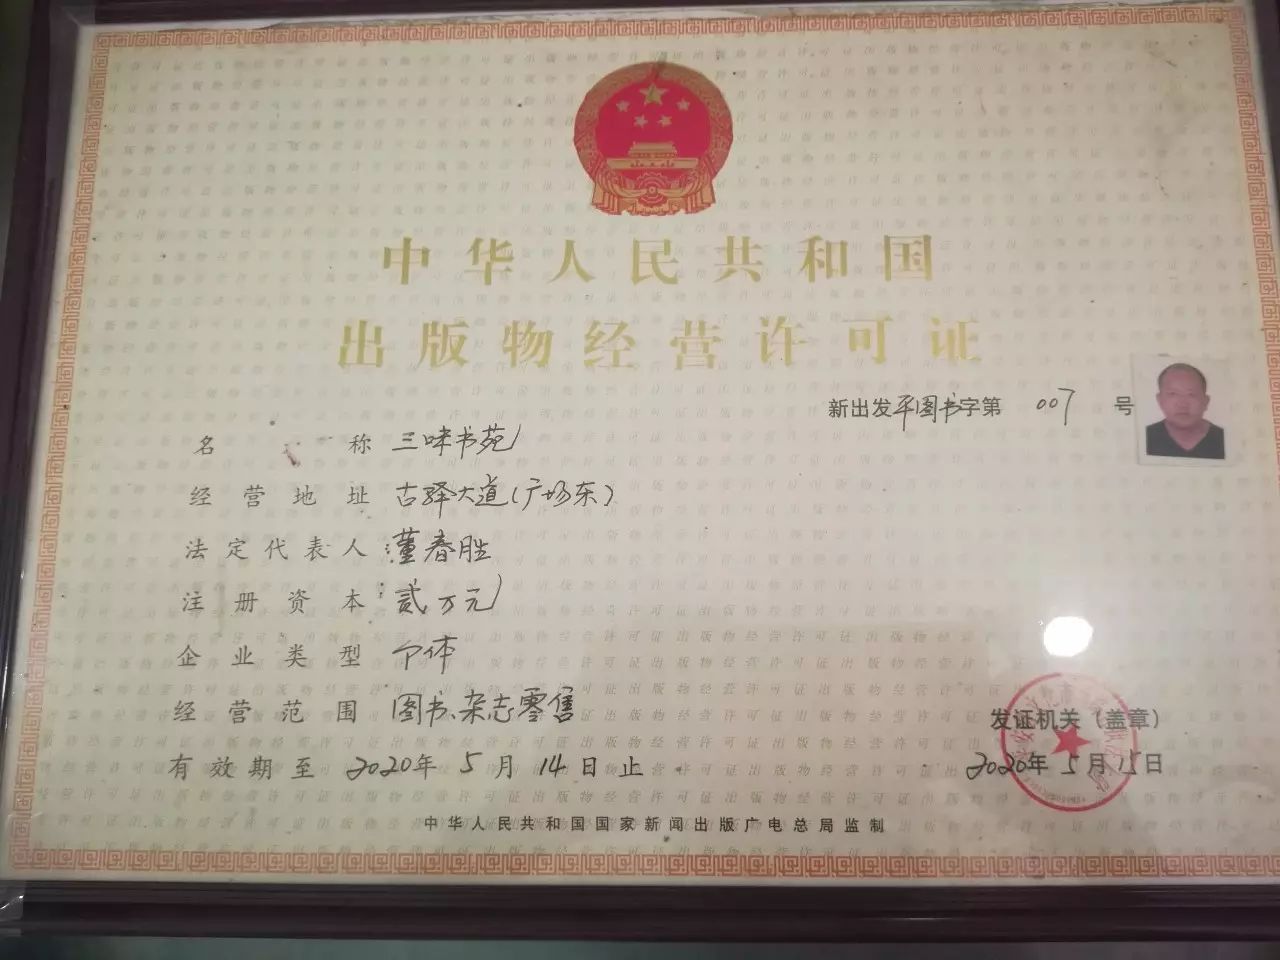 中华人民共和国
出版物经营许可证
新出发平图书字第 007 号
名称 三味书苑
经营地址 古驿大道(广场东)
法定代表人 董春胜
注册资本 贰万元
企业类型 个体
经营范围 图书、杂志零售
有效期至 2020年 5 月 14 日止
发证机关（盖章）
2020年 5 月 15 日
中华人民共和国国家新闻出版广电总局监制